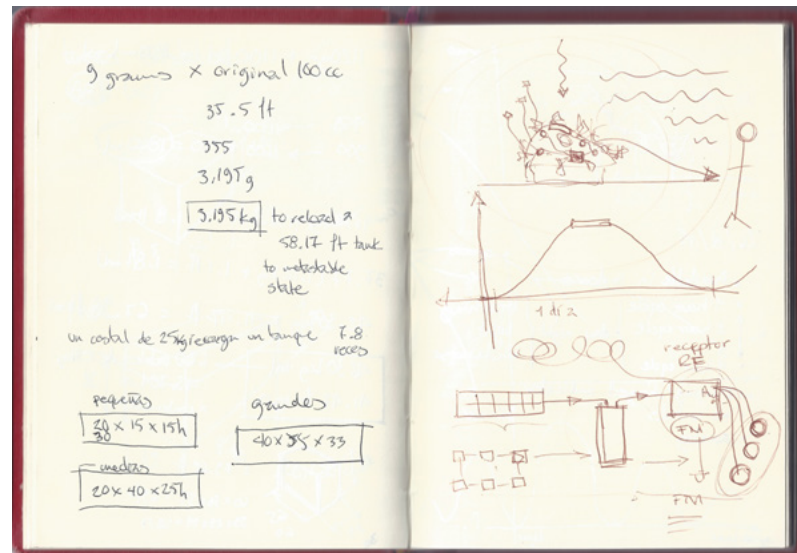 9 grams x original 100 cc
35.5 ft
355
3,195 g
3.195 kg to reload a
58.17 ft tank
to metastable
state
un costal de 25kg recarga un tanque 7.8
veces
pequeñas
20 x 15 x 15h
30
medias
20 x 40 x 25h
grandes
40 x 35 x 33
1 día
receptor
RF
A
FM
FM